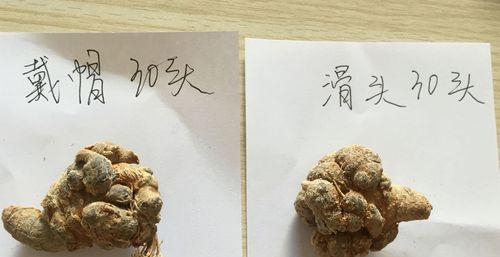 戴帽 30头
滑头 30头